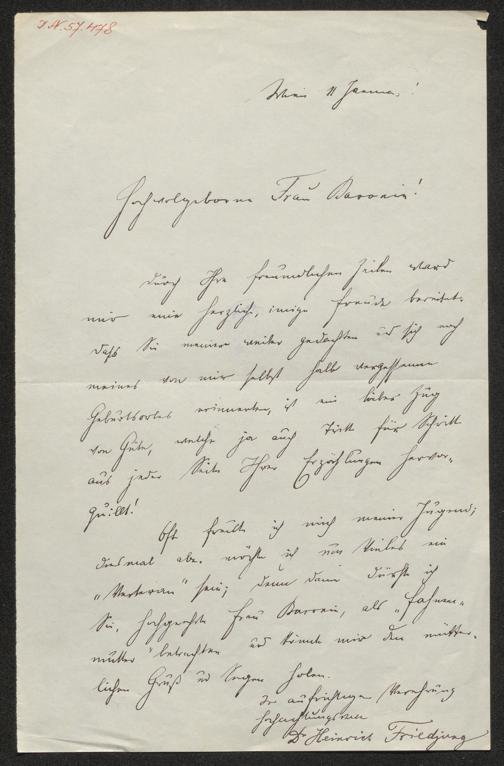 J.N. 57.478
Wien 11 Januar!
Hochwolgeborene Frau Baronin!
Durch Ihre freundlichen Zeilen ward
mir eine herzliche, innige Freude bereitet.
Dass Sie meiner weiter gedachten und sich noch
meines von mir selbst halb vergessenen
Geburtsortes erinnerten, ist ein lieber Zug
von Güte, welche ja auch Tritt für Schritt
aus jeder Seite Ihrer Erzählungen hervor-
quillt!
Oft freute ich mich meiner Jugend;
diesmal aber möchte ich um Vieles ein
„Veteran" sein; denn dann dürfte ich
Sie, hochgeehrte Frau Baronin, als „Fahnen-
mutter" betrachten und könnte mir den mütter-
lichen Gruß und Segen holen.
In aufrichtiger Verehrung
hochachtungsvoll
Dr Heinrich Friedjung